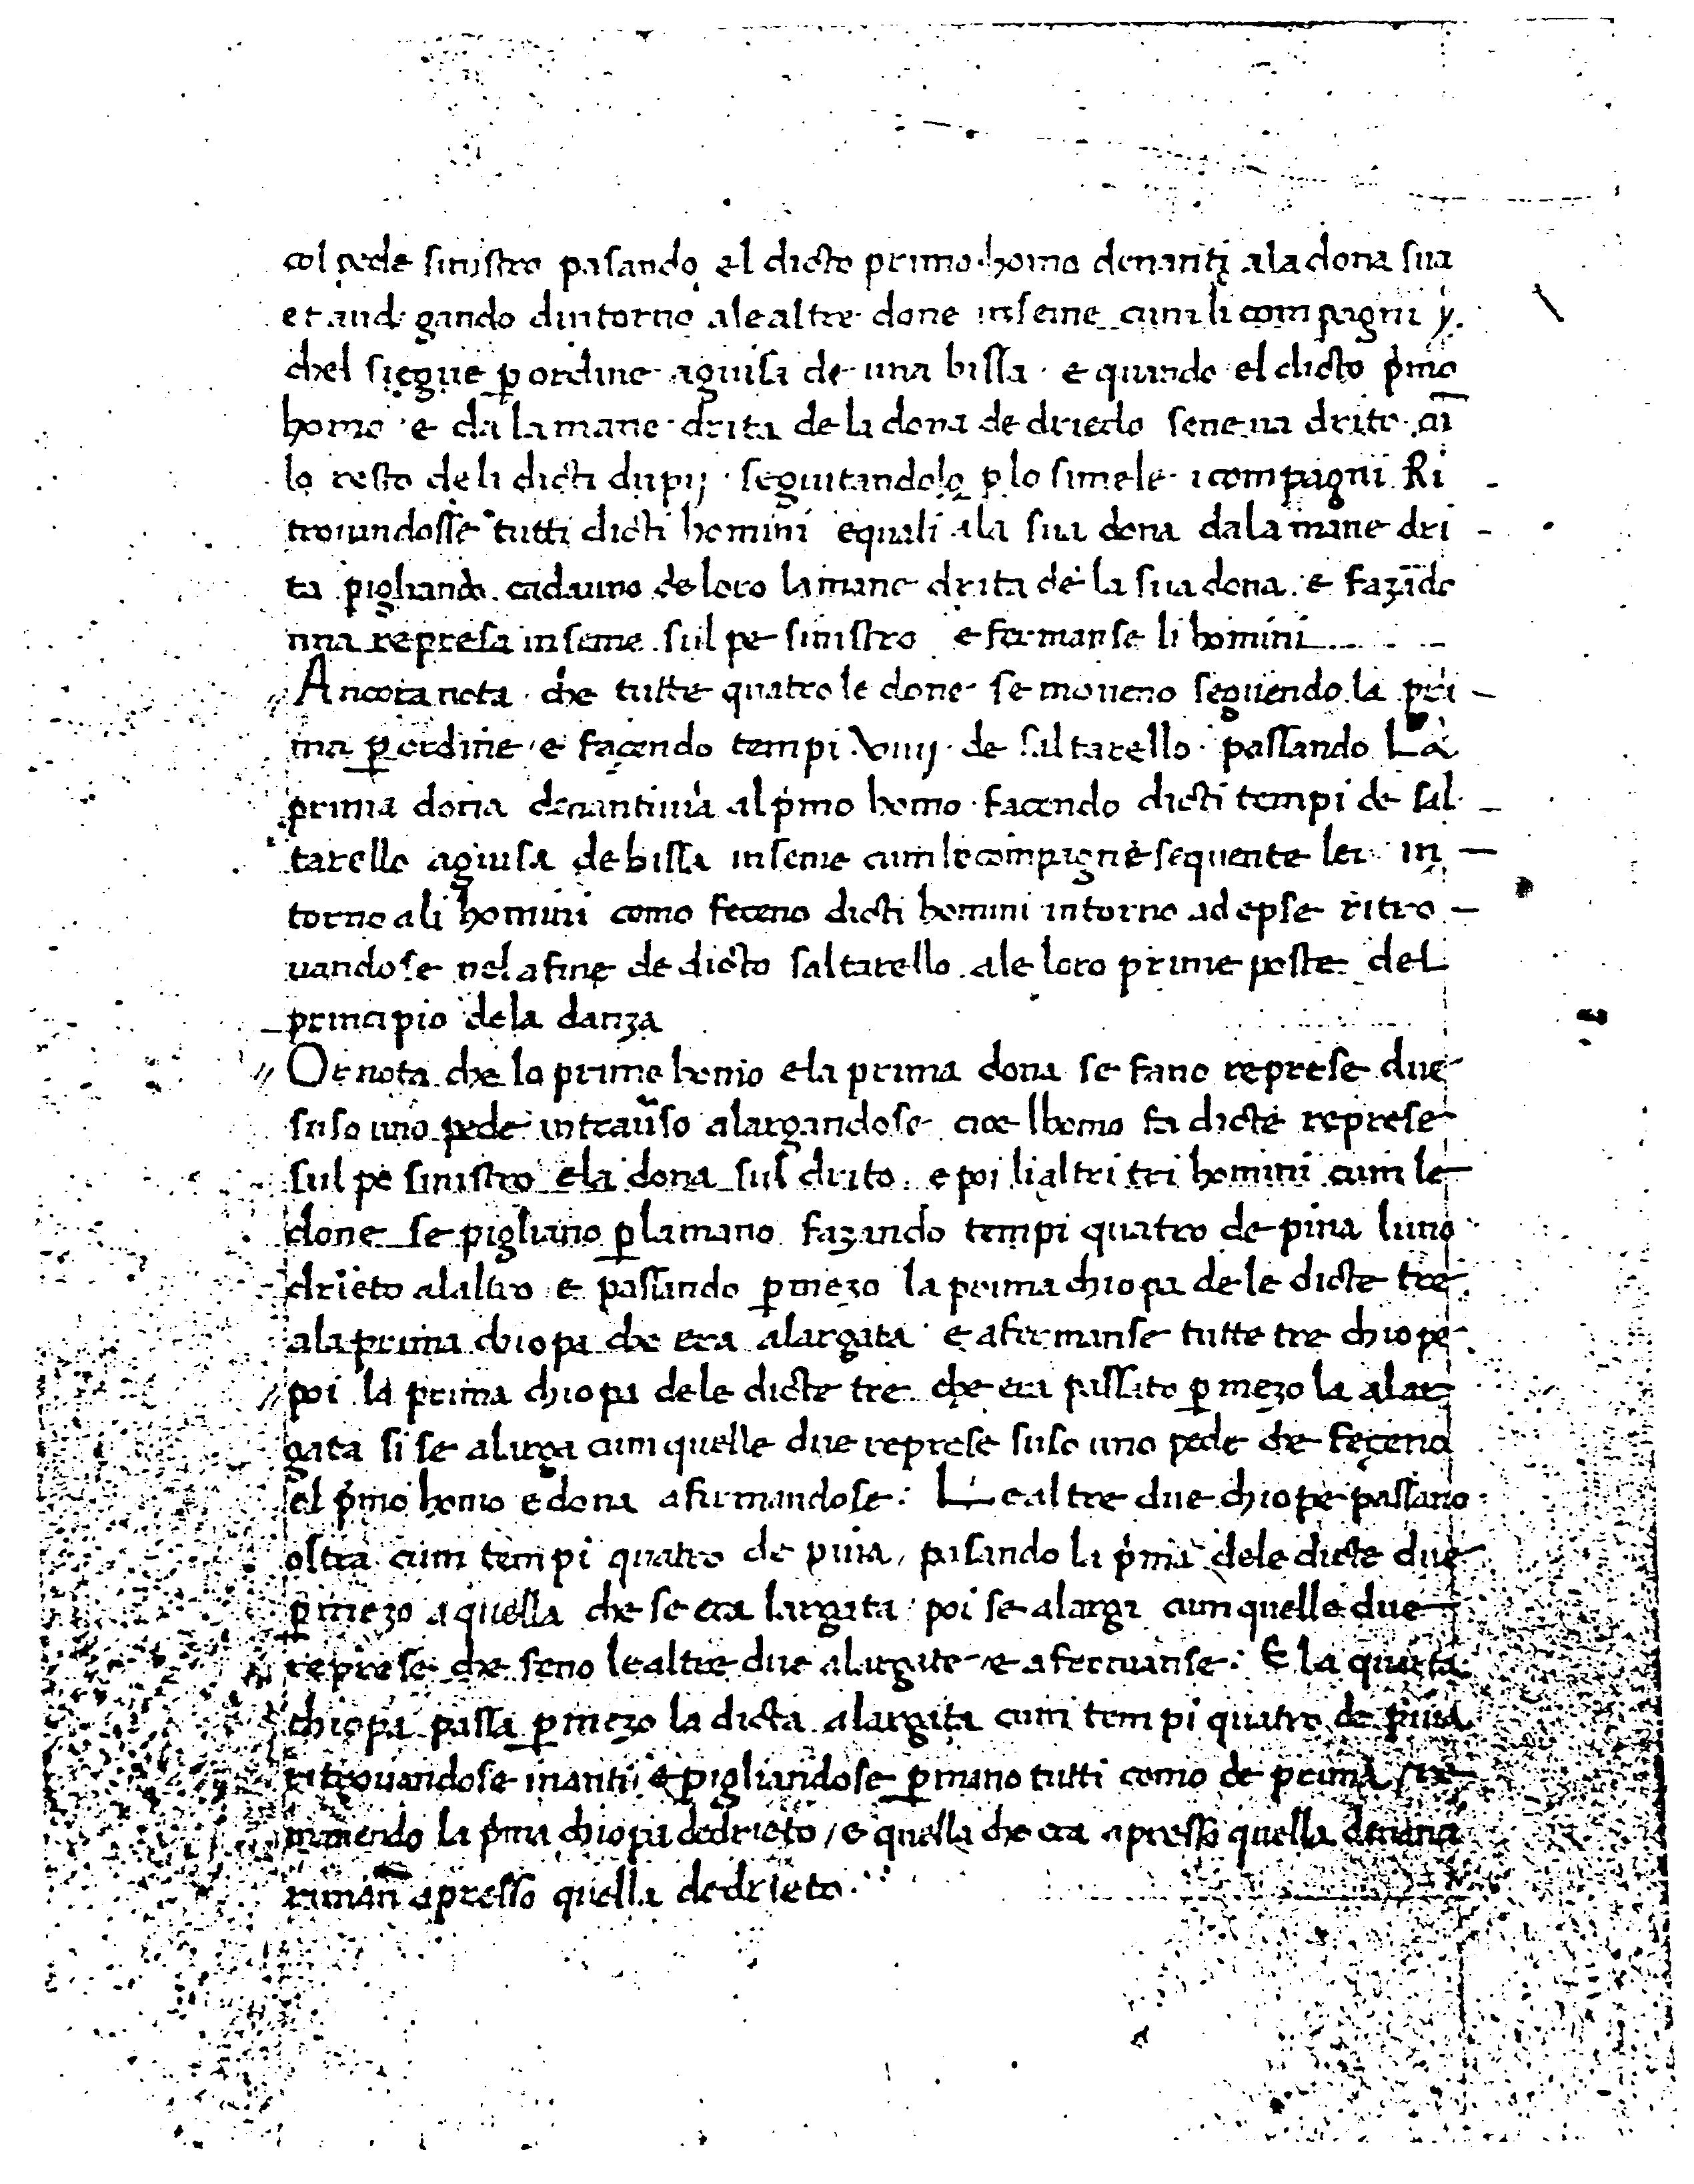 col pede sinistro pasando el dicto primo homo denanti ala dona sua
et gando dintorno ale altre done inseme cum li compagni
chel siegue ꝑ ordine aguisa de una bissa e quando el dicto p̍mo
homo e da la mane drita de la dona de driedo sene ua drito cū
lo resto de li dicti dupij seguitandolo ꝑ lo simele i compagni Ri
trouandosse tutti dicti homini equali ala sua dona dala mane dri
ta pigliando cadauno de loro la mane drita de la sua dona e fazādo
una represa inseme sul pe sinistro e fermanse li homini
Ancora nota che tutte quatro le done se moueno seguendo la pri
ma ꝑ ordine e facendo tempi Xviiij de saltarello passando La
prima dona denanti uia al p̍mo homo facendo dicti tempi de sal
tarello aguisa de bissa inseme cum le compagne sequente lei in
torno a li homini como feceno dicti homini intorno ad epse ritro
uandose nela fine de dicto saltarello ale loro prime poste del
principio dela danza
Or nota che lo primo homo e la prima dona se fano represe due
suso uno pede intraūso alargandose cioe lhomo fa dicte represe
sul pe sinistro e la dona sul drito e poi li altri tri homini cum le
done se pigliano ꝑ la mano fazando tempi quatro de piua luno
drieto alaltro e passando ꝑ mezo la prima chiopa de le dicte tre
ala prima chiopa che era alargata e afermanse tutte tre chiope
poi la prima chiopa dele dicte tre che era passato ꝑ mezo la alar
gata si se alarga cum quelle due represe suso uno pede che feceno
el p̍mo homo e dona afirmandose: Le altre due chiope passano
oltra cum tempi quatro de piua, pasando la p̍ma dele dicte due
ꝑ mezo a quella che se era largata poi se alarga cum quelle due
represe che feno le altre due alargate e afermanse: E la quarta
chiopa passa ꝑ mezo la dicta alargata cum tempi quatro de piua
ritrouandose inanti e pigliandose ꝑ mano tutti como de prima
manendo la p̍ma chiopa dedrieto / e quella che era apresso quella
riman̄ apresso quella dedrieto